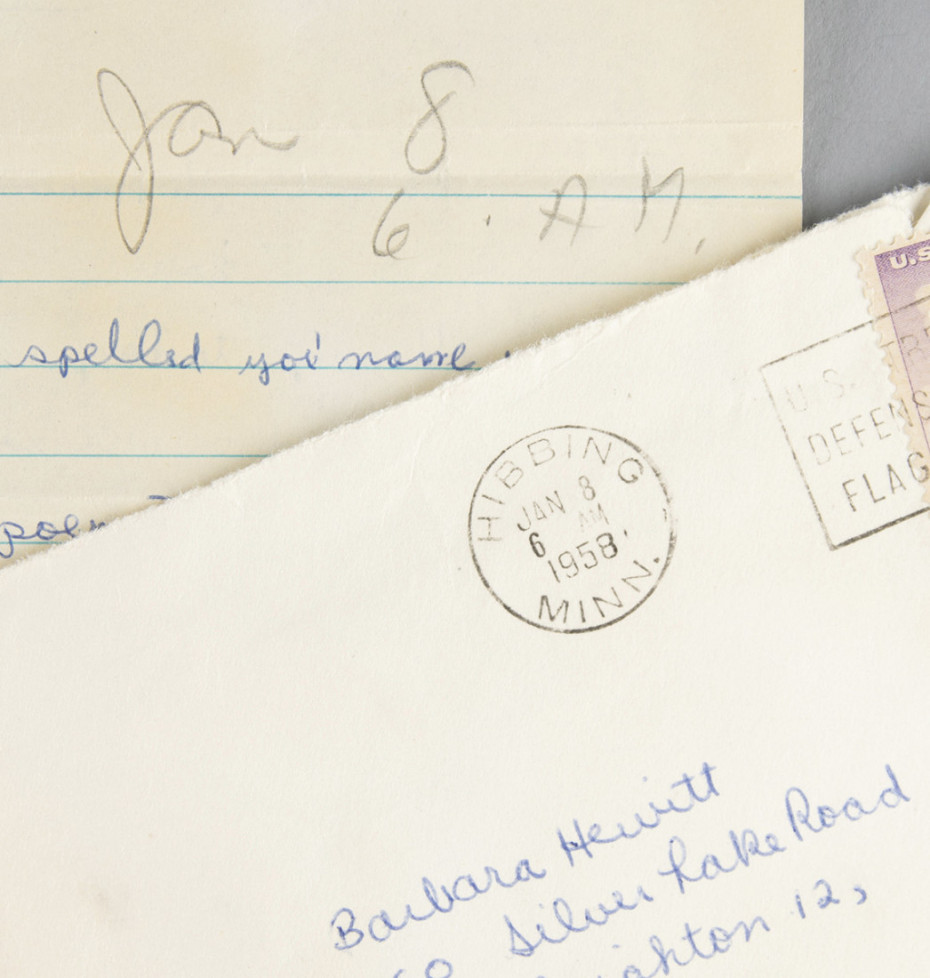 Jan 8
6. A M.
spelled yor name.
poem
U.S
HIBBING
JAN 8
6 AM
1958
MINN.
U.S.
DEFENS
FLAG
Barbara Hewitt
Silver Lake Road
ighton 12,